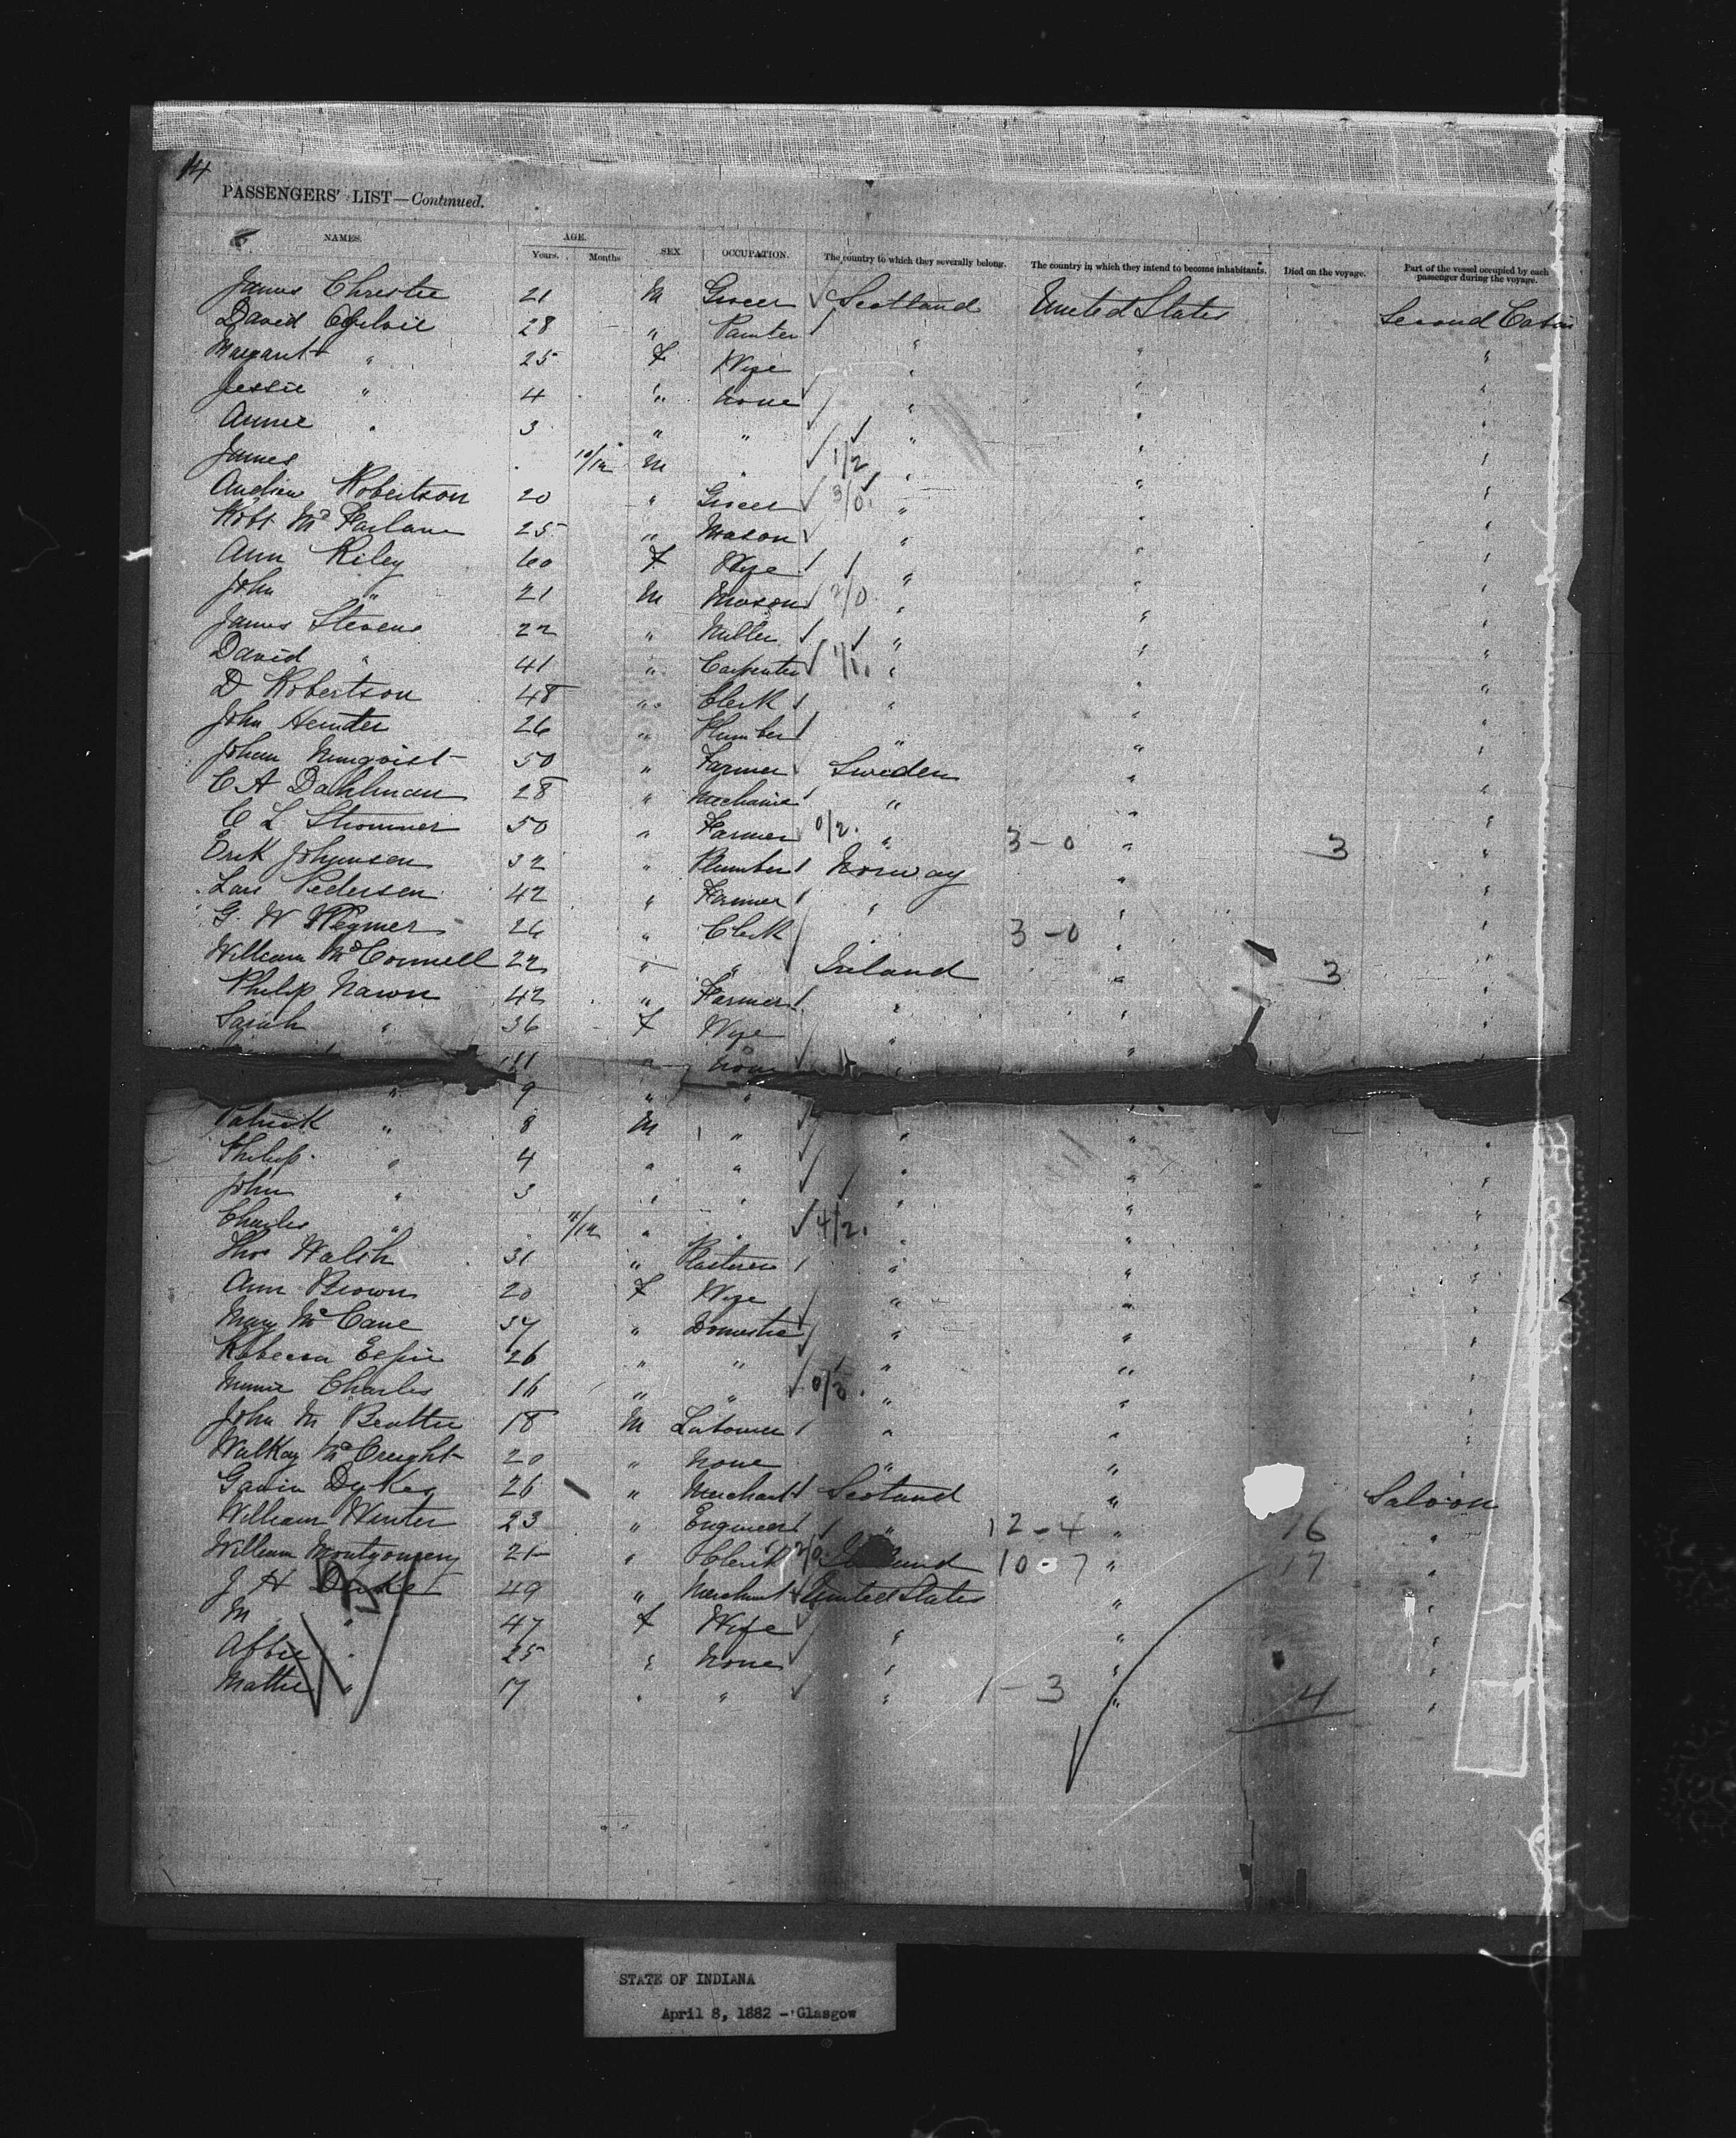 14
PASSENGERS' LIST—Continued.
NAMES. AGE. SEX OCCUPATION. The country to which they severally belong. The country in which they intend to become inhabitants. Died on the voyage. Part of the vessel occupied by each passenger during the voyage.
Years. Months
James Christie 21 M Grocer Scotland United States Second Cabin
David Ogilvie 28 " Painter " " "
Margaret " 25 F Wife " " "
Jessie " 4 " None " " "
Annie " 3 " " " " "
James " 10/12 M " 1/2 " " "
Andrew Robertson 20 " Grocer 3/0 " " "
Robt McFarlane 25 " Mason " " "
Ann Riley 60 F Wife " " "
John " 21 M Mason 2/0 " " "
James Stevens 22 " Miller " " "
David " 41 " Carpenter 1/1 " " "
D Robertson 48 " Clerk " " "
John 26 " Plumber " " "
Johan 50 " Farmer Sweden " "
C A Dahlman 28 " Mechanic " " "
C L 50 " Farmer 0/2 " 3-0 " 3 "
Erik Johansen 32 " Plumber Norway " "
Lars Pedersen 42 " Farmer " " "
G. W Wegner 26 " Clerk " 3-0 " "
William McConnell 22 " " Ireland " 3 "
Philip Nawn 42 " Farmer " " "
Sarah " 36 F Wife " " "
11 " None " "
" 9 " "
Patrick " 8 M " " " "
Philip " 4 " " " " "
John " 3 " " " " "
Charles " /12 " " 4/2. " " "
Thos Walsh 31 " Plasterer " " "
Ann Brown 20 F Wife " " "
Mary McCane 37 " Domestic " " "
Rebecca Espie 26 " " " " "
Minnie Charles 16 " " 0/3. " " "
John M Beattie 18 M Labourer " " "
McCreight 20 " None " " "
Gavin Dykes 26 " Merchant Scotland " Saloon
William Winter 23 " Engineer " 12-4 " 16 "
William Montgomery 21 " Clerk 2/0 10-7 " 17 "
J H Drake 49 " Merchant United States " "
M " 47 F Wife " " "
Abbie " 25 " None " " "
Mattie " 17 " " " 1-3 " 4 "
STATE OF INDIANA
April 8, 1882 - Glasgow